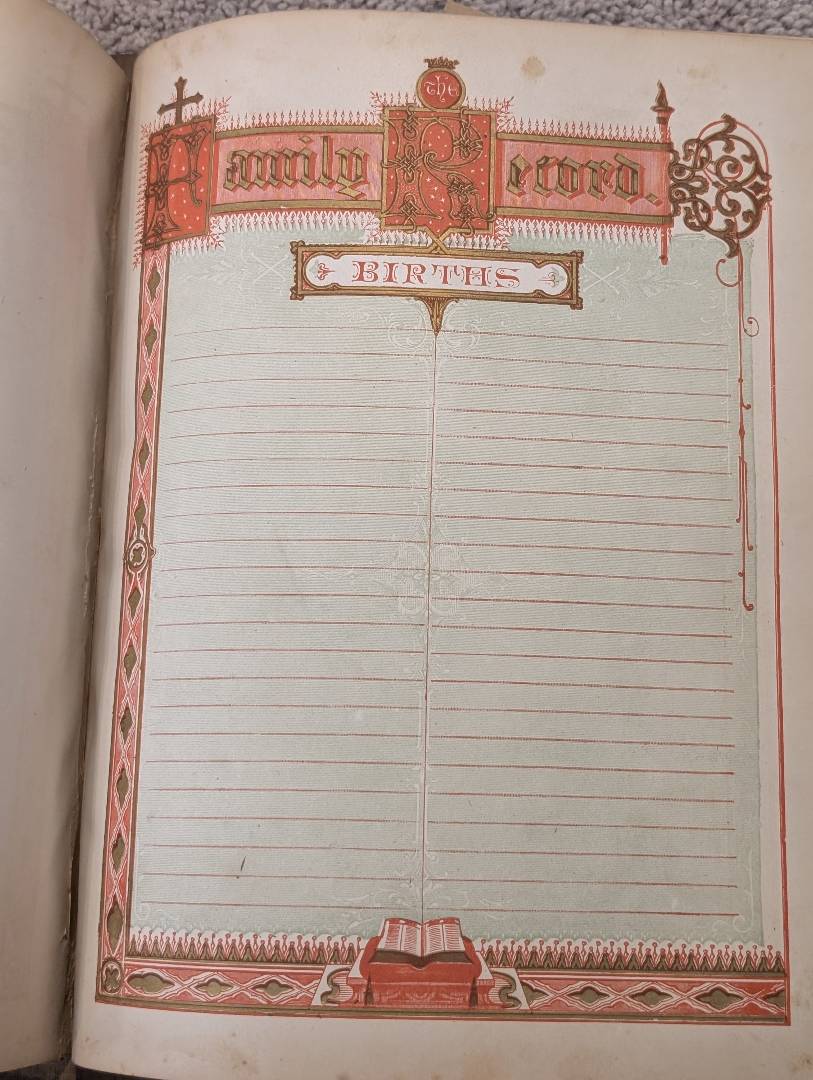 The
Family Record.
BIRTHS